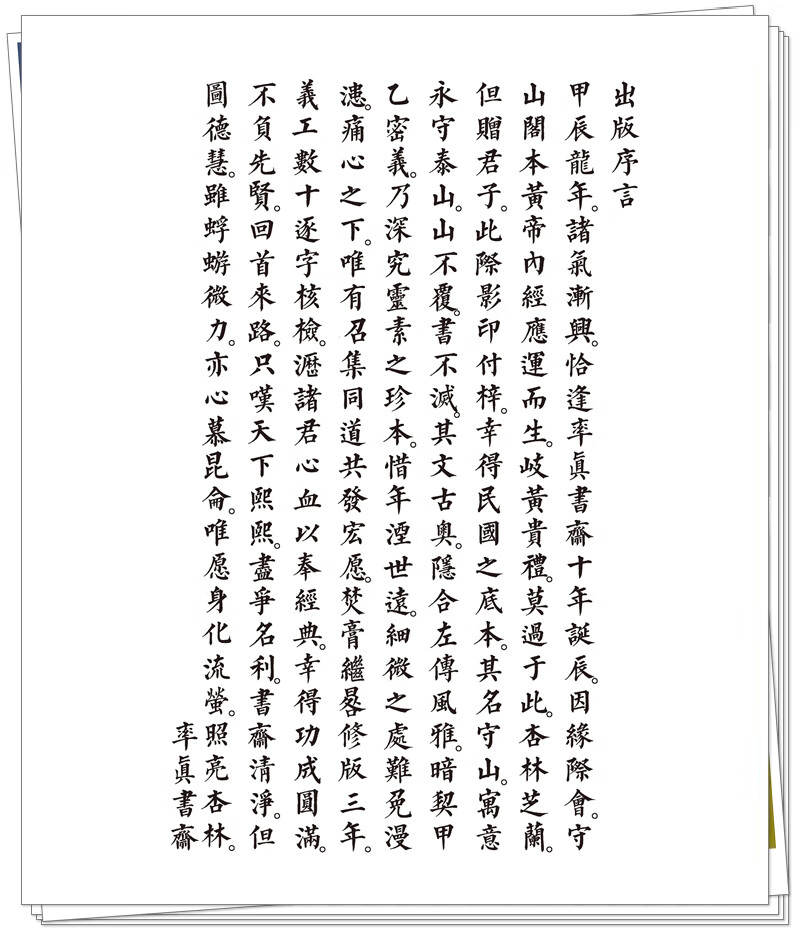 出版序言
甲辰龍年。諸氣漸興。恰逢率真書齋十年誕辰。因緣際會。守
山閣本黃帝內經應運而生。岐黃貴禮。莫過于此。杏林芝蘭。
但贈君子。此際影印付梓。幸得民國之底本。其名守山。寓意
永守泰山。山不覆。書不滅。其文古奧。隱合左傳風雅。暗契甲
乙密義。乃深究靈素之珍本。惜年湮世遠。細微之處難免漫
漶。痛心之下。唯有召集同道共發宏愿。焚膏繼晷修版三年。
義工數十逐字核檢。瀝諸君心血以奉經典。幸得功成圓滿。
不負先賢。回首來路。只嘆天下熙熙。盡爭名利。書齋清淨。但
圖德慧。雖蜉蝣微力。亦心慕昆侖。唯愿身化流螢。照亮杏林。
率真書齋